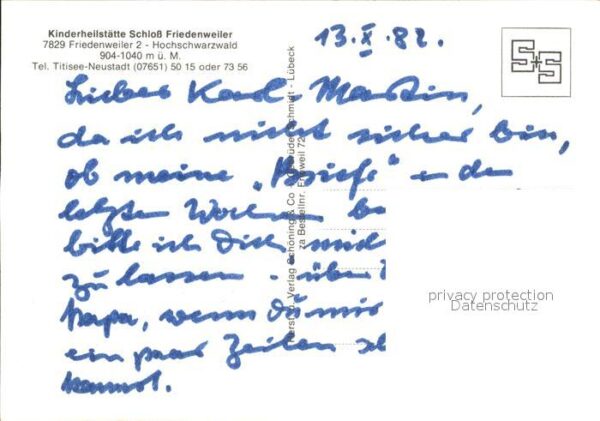 Kinderheilstätte Schloß Friedenweiler
7829 Friedenweiler 2 - Hochschwarzwald
904-1040 m ü. M.
Tel. Titisee-Neustadt (07651) 50 15 oder 73 56
13.X.82.
S+S
Lieber Karl-Martin,
da ich nicht sicher bin,
ob meine „Briefe" in den
letzten Wochen
bitte ich Dich,
zu lassen - über
Papa, wenn Du mir
ein paar Zeilen
kannst.
Verlag Schöning & Co + Gebrüder Schmidt - Lübeck
za Bestellnr. Frieweil 72
privacy protection
Datenschutz